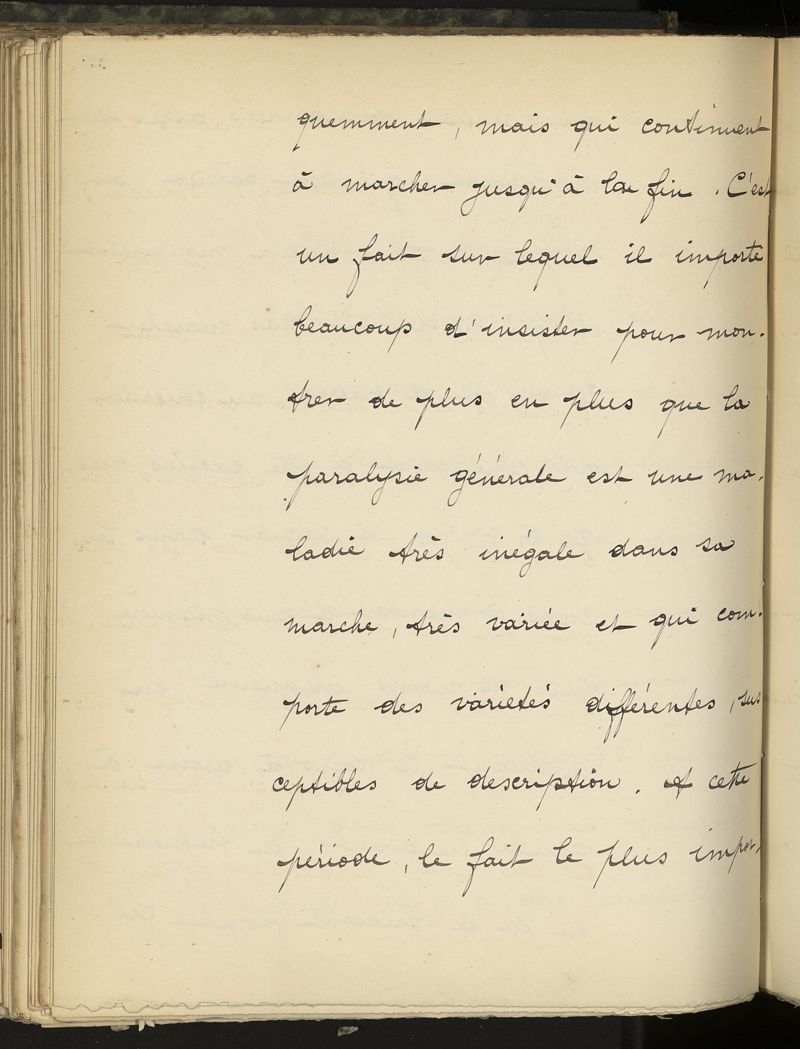 quemment, mais qui continuent
à marcher jusqu'à la fin. C'est
un fait sur lequel il importe
beaucoup d'insister pour mon-
trer de plus en plus que la
paralysie générale est une ma-
ladie très inégale dans sa
marche, très variée et qui com-
porte des variétés différentes, sus
ceptibles de description. A cette
période, le fait le plus impor-